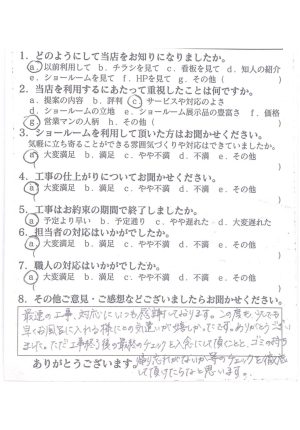 1．どのようにして当店をお知りになりましたか。
a．以前利用して　b．チラシを見て　c．看板を見て　d．知人の紹介
e．ショールームを見て　f．HPを見て　g．その他（　　　）
2．当店を利用するにあたって重視したことは何ですか。
a．提案の内容　b．評判　c．サービスや対応のよさ
d．ショールームの立地　e．ショールーム展示品の豊富さ　f．価格
g．営業マンの人柄　h．その他（　　　）
3．ショールームを利用して頂いた方はお聞かせください。
気軽に立ち寄ることができる雰囲気づくりや対応はできていましたか。
a．大変満足　b．満足　c．やや不満　d．不満　e．その他
（　　　）
4．工事の仕上がりについてお聞かせください。
a．大変満足　b．満足　c．やや不満　d．不満　e．その他
（　　　）
5．工事はお約束の期間で終了しましたか。
a．予定より早い　b．予定通り　c．やや遅れた　d．大変遅れた
6．担当者の対応はいかがでしたか。
a．大変満足　b．満足　c．やや不満　d．不満　e．その他
（　　　）
7．職人の対応はいかがでしたか。
a．大変満足　b．満足　c．やや不満　d．不満　e．その他
（　　　）
8．その他ご意見・ご感想などございましたらお聞かせください。
最速の工事、対応にいつも感謝しております。この度も少しでも
早くお風呂に入れる様にとの気遣いが嬉しかったです。ありがとうござい
ました。ただ工事終了後の最終のチェックを入念にして頂くことと、ゴミの持ち
ありがとうございます。帰り忘れがないか等のチェックも徹底
して頂けたらなと思います。